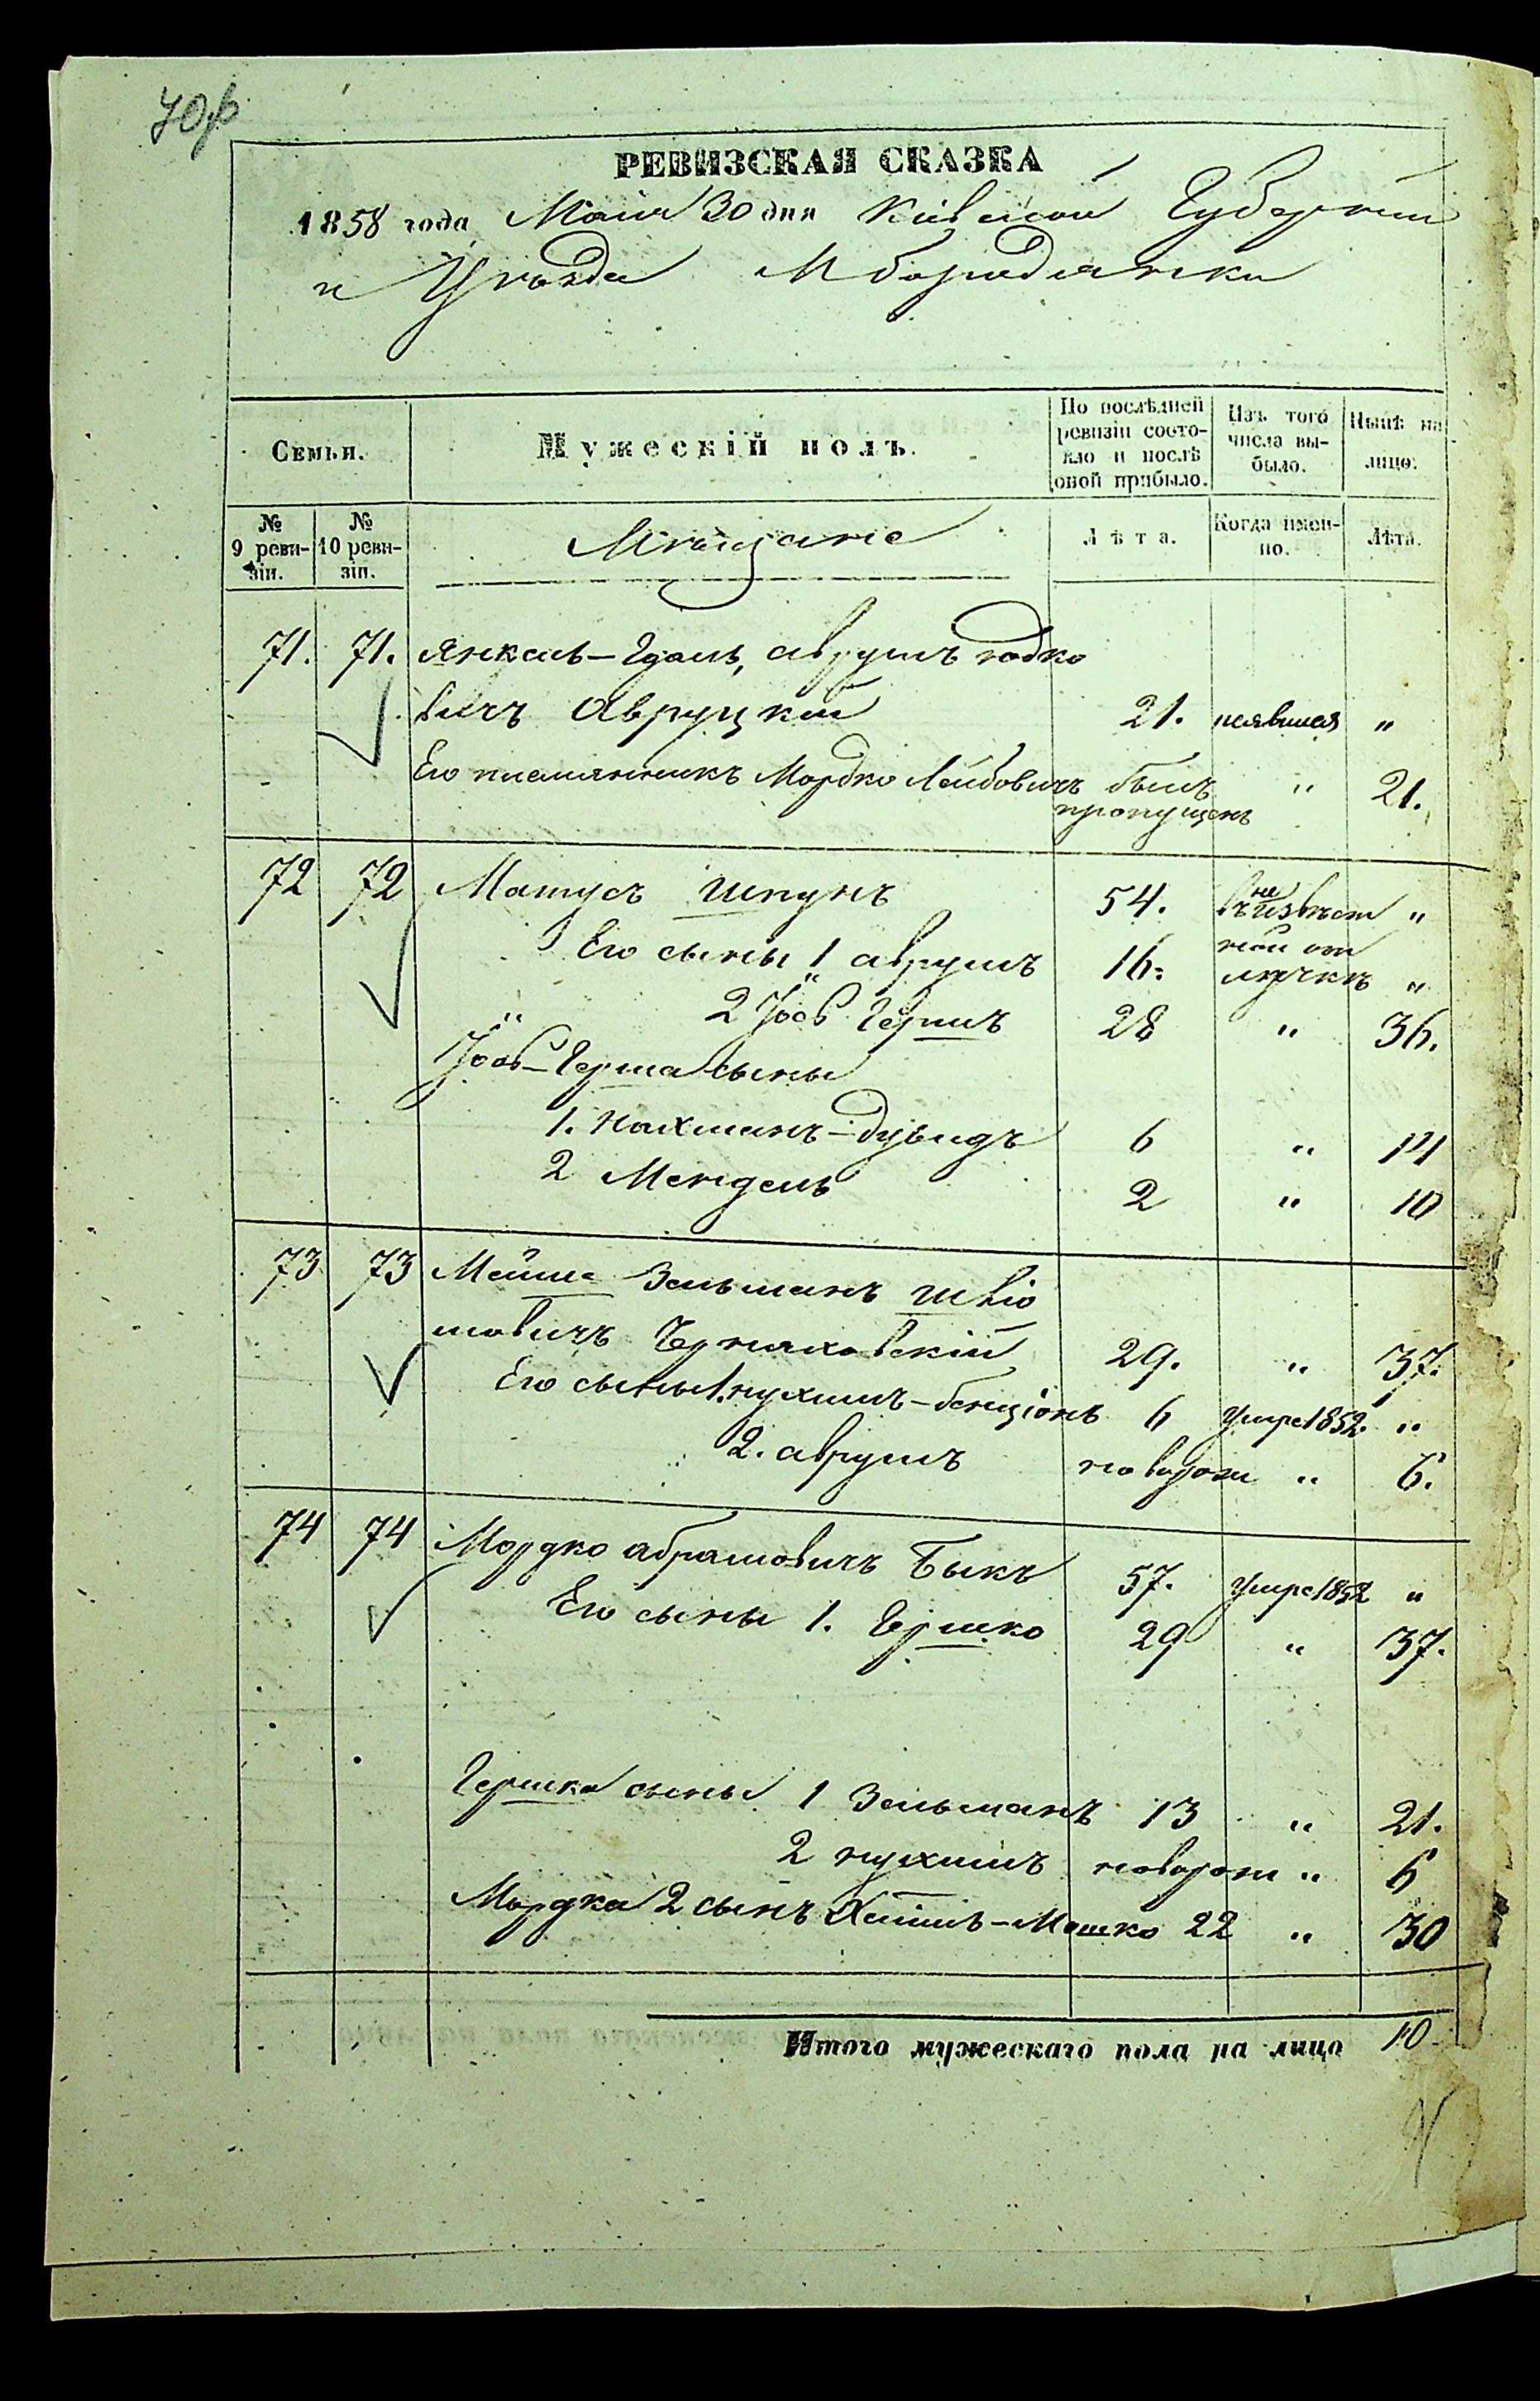 РЕВИЗСКАЯ СКАЗКА
1858 года Маія 30 дня Кіевской Губерніи
и Уѣзда М Бородянки
Семьи.
Мужескій полъ.
По послѣдней ревизіи состояло и послѣ оной прибыло.
Изъ того числа выбыло.
Нынѣ на лицо.
№ 9 ревизіи.
№ 10 ревизіи.
Мѣщане
Лѣта.
Когда именно.
Лѣта.
71. 71. Янкель-Гдаль, Аврумъ
вичъ Авруцкій 21. неявился "
Его племянникъ Мордко Лейбовичъ былъ пропущенъ " 21.
72 72 Матусъ Шпунъ 54. въ неизвѣст "
Его сыны 1 Аврумъ 16. ной от лучкѣ "
2 Іось Гершъ 28 " 36.
Іось-Герша сыны
1. Нахманъ-Дувидъ 6 " 14
2 Мендель 2 " 10
73 73 Мейше Зельманъ Шліо
мовичъ Черняховскій 29. " 37.
Его сыны 1. Нухимъ-Бенціонъ 6 Умре 1852. "
2. Аврумъ новорож " 6.
74 74 Мордко Абрамовичъ Быкъ 57. Умре 1852 "
Его сыны 1. Гершко 29 " 37.
Гершка сыны 1 Зельманъ 13 " 21.
2 Нухимъ новорож " 6
Мордка 2 сынъ Хаимъ-Мошко 22 " 30
Итого мужескаго пола на лицо 10